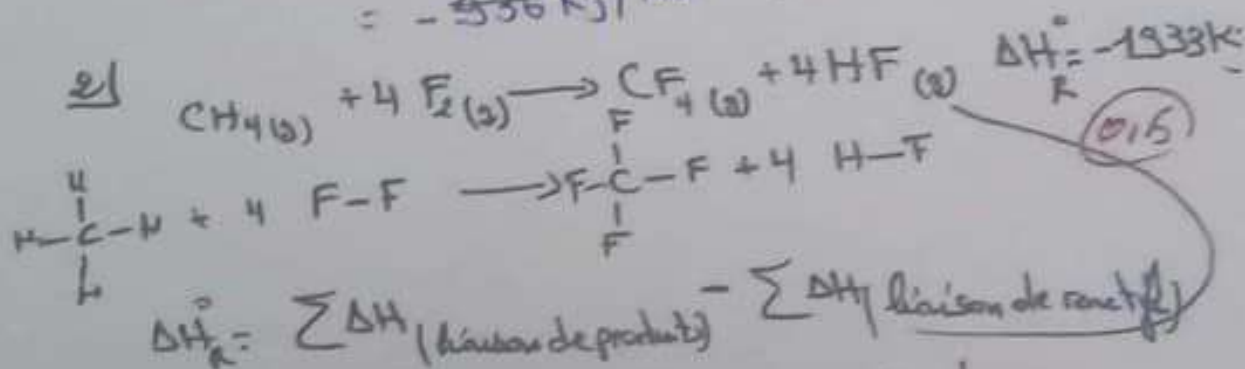 = - 936 kJ/
2) CH4(g) + 4 F2(g) → CF4(g) + 4HF(g) ΔH°R = -1933k
0,5
H
H-C-H + 4 F-F → F-C-F + 4 H-F
F
F
ΔH°R = ΣΔH (liaison de produits) - ΣΔH (liaison de reactifs)